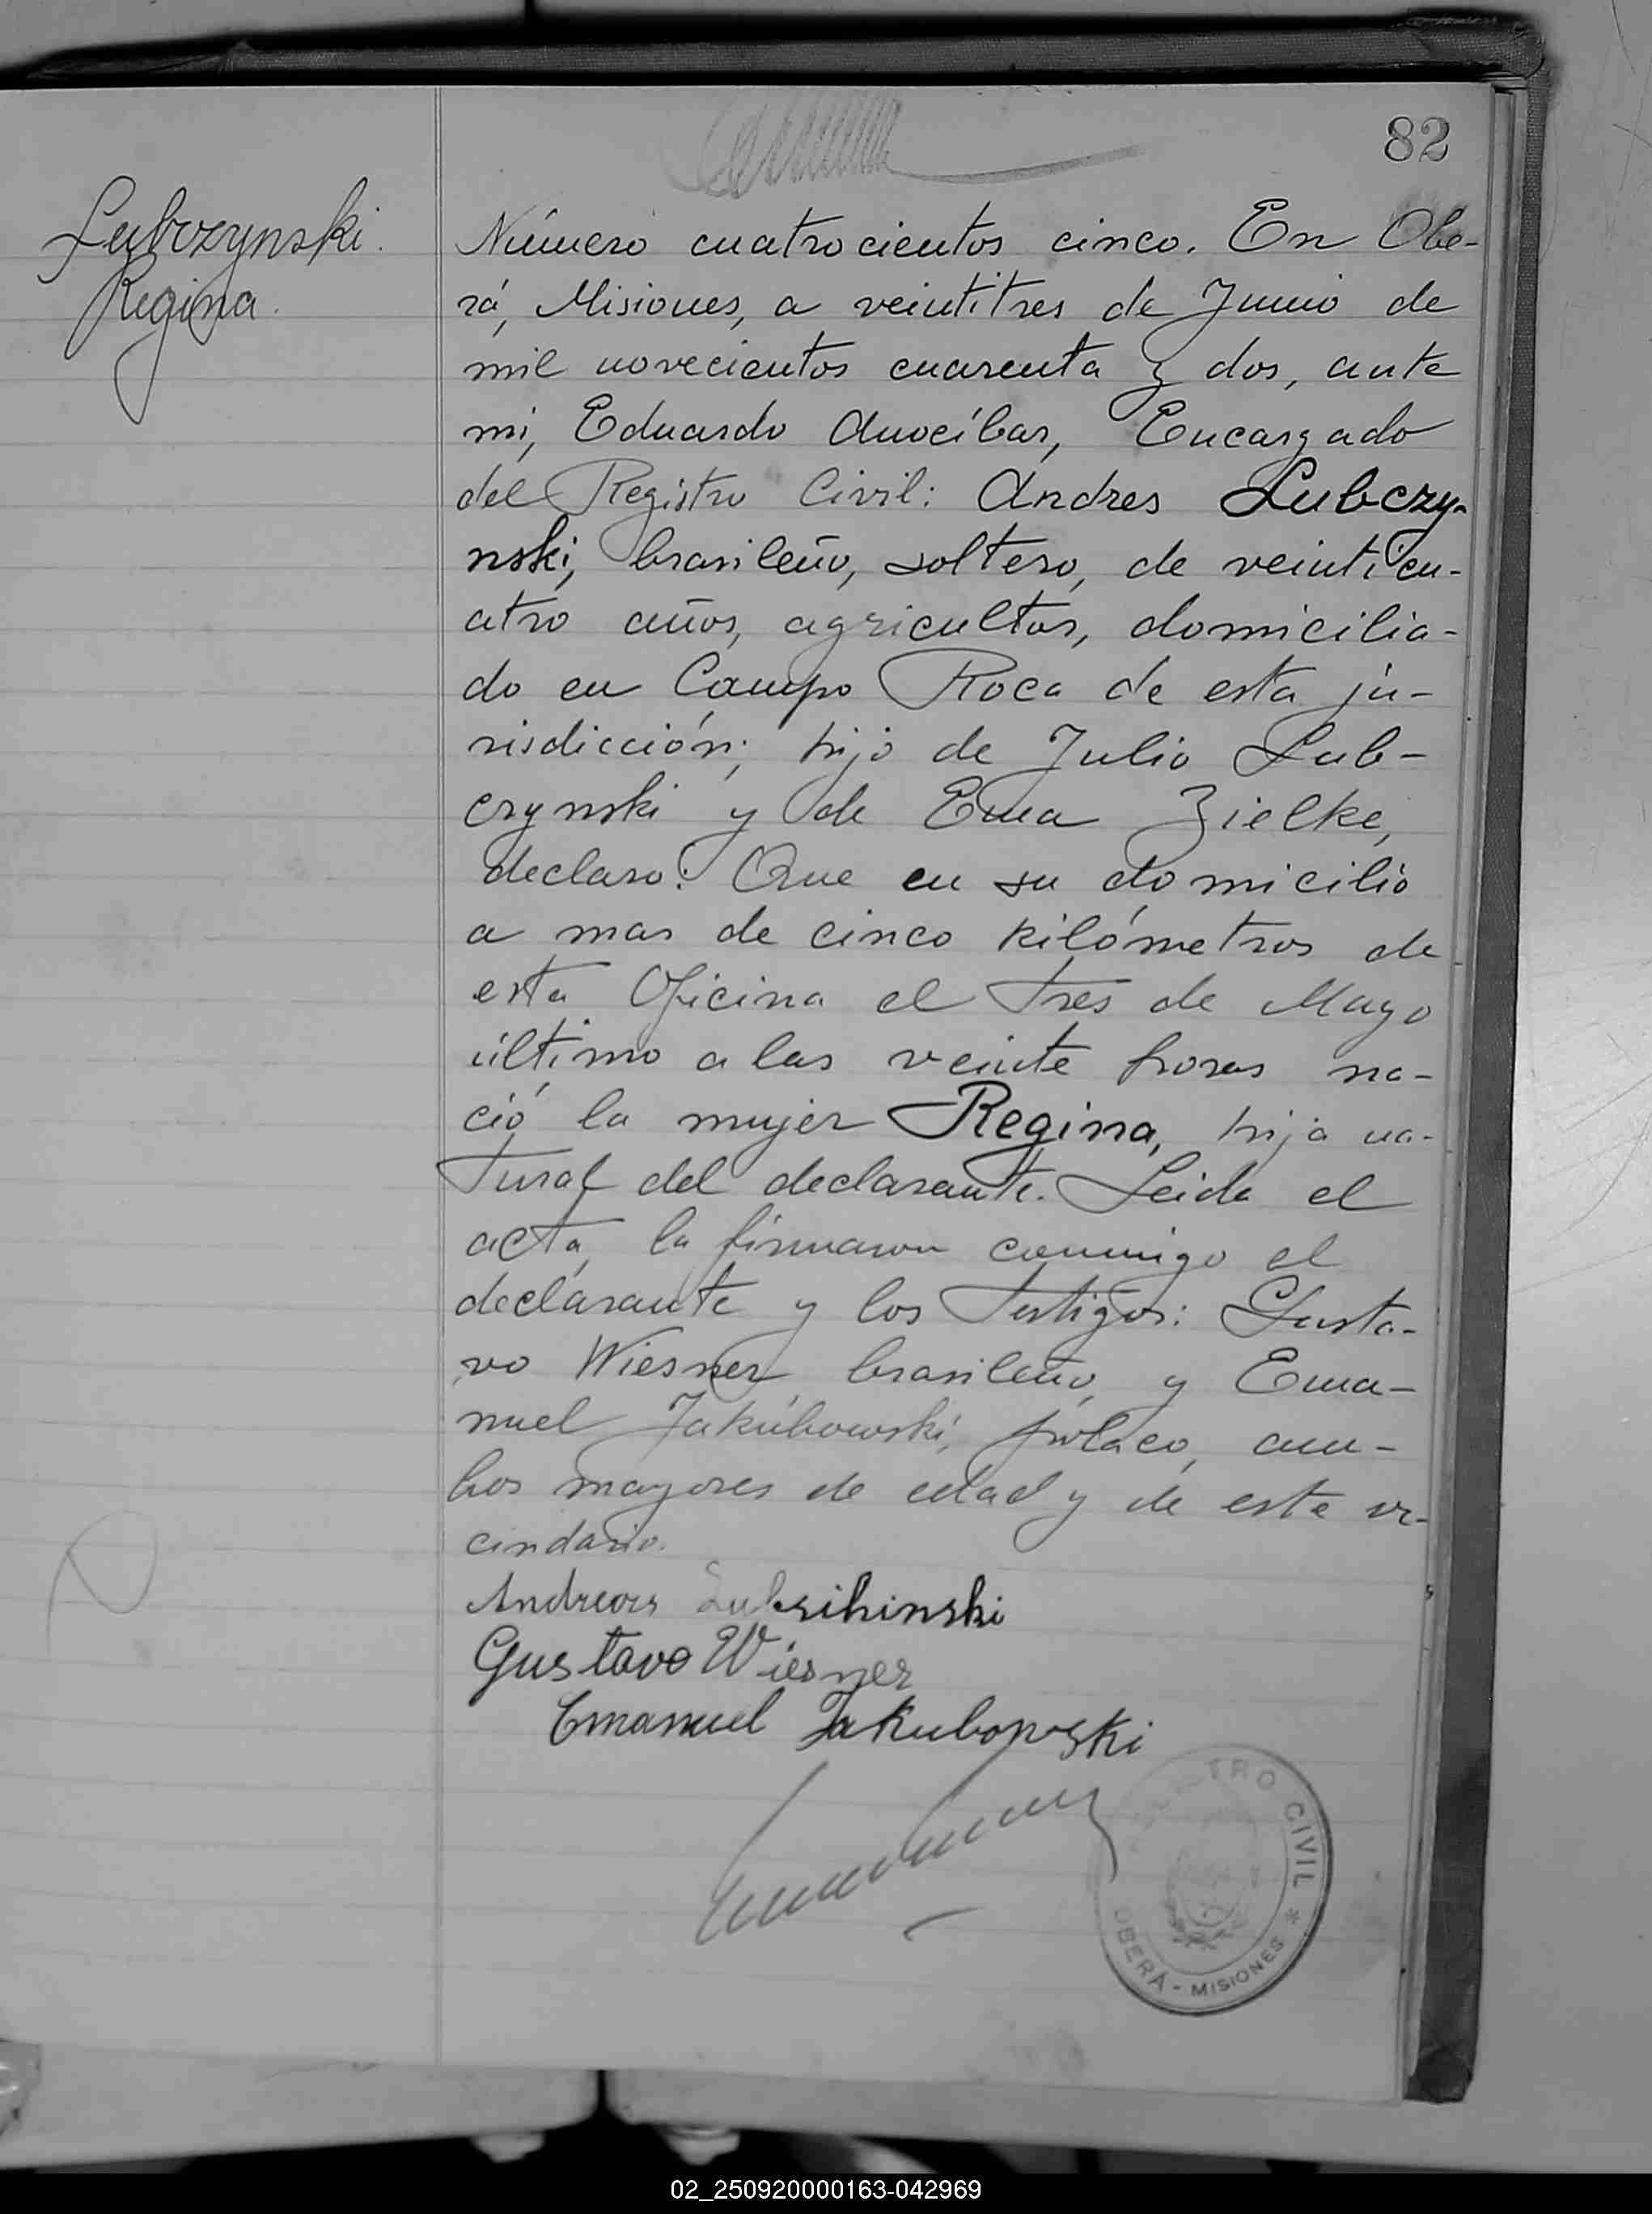 82
Lubczynski.
Regina.
Número cuatrocientos cinco. En Obe-
rá, Misiones, a veintitres de Junio de
mil novecientos cuarenta y dos, ante
mi, Eduardo Anocíbar, Encargado
del Registro Civil: Andres Lubczy-
nski, brasileño, soltero, de veinticu-
atro años, agricultor, domicilia-
do en Campo Roca de esta ju-
risdicción; hijo de Julio Lub-
czynski y de Ema Zielke,
declaro: Que en su domicilio
a mas de cinco kilómetros de
esta Oficina el tres de Mayo
último a las veinte horas na-
ció la mujer Regina, hija na-
tural del declarante. Leida el
acta, la firmaron conmigo el
declarante y los testigos: Gusta-
vo Wiesner, brasileño, y Ema-
nuel Jakúbowski, polaco, am-
bos mayores de edad y de este ve-
cindario.
Andreas Lubsihinski
Gustavo Wiesner
Emanuel Jakubowski
REGISTRO CIVIL *
OBERÁ - MISIONES
02_250920000163-042969